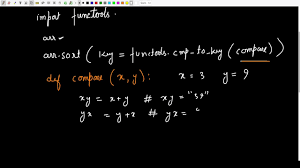 import functools.
arr-
arr.sort ( key = functools.cmp_to_key (compare)
def compare (x, y): x = 3 y = 9
xy = x+y # xy = "39"
yx = y+x # yx = "